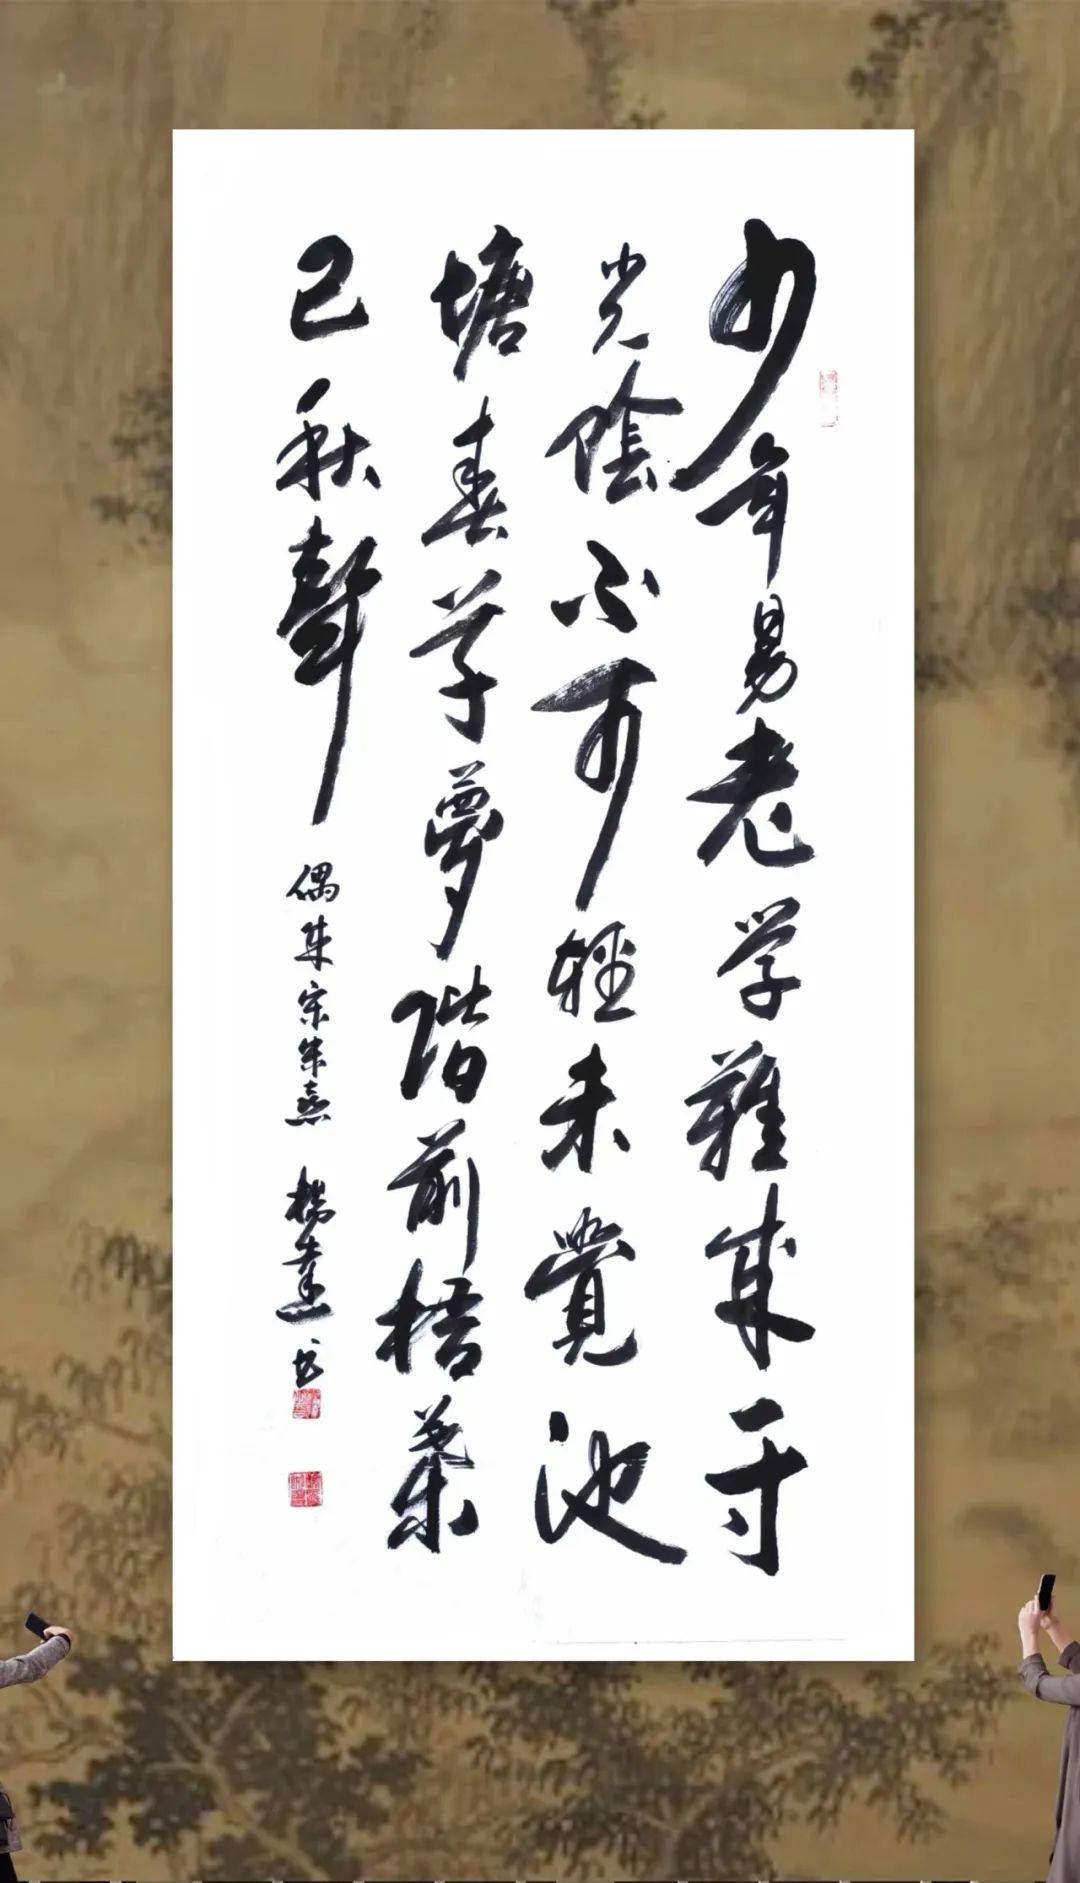 少年易老学難成一寸
光陰不可輕未覺池
塘春草夢階前梧葉
已秋聲
偶成宋朱熹 楊书